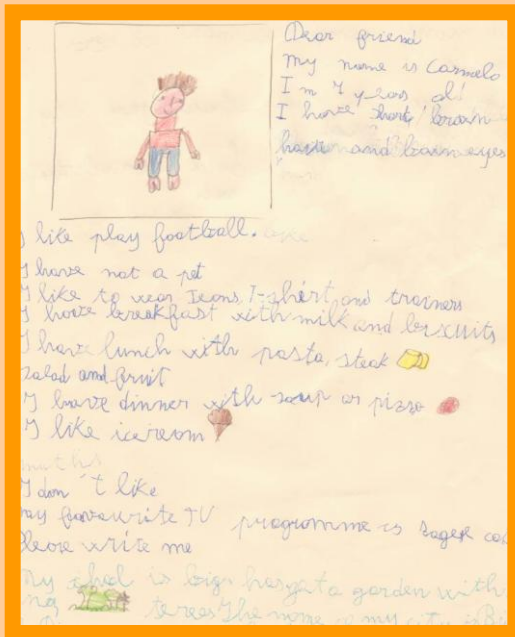 Dear friend
my name is Carmelo
I m 7 years old
I have short/brown
and brown eyes
I like play football.
I have not a pet
I like to wear Jeans, T-shirt, and trainers
I have breakfast with milk and biscuits
I have lunch with pasta, steak
salad and fruit
I have dinner with soup or pizza
I like icereom
maths
I don't like
my favourite TV programme is
Please write me
My shol is big has a garden with
The name of my city is